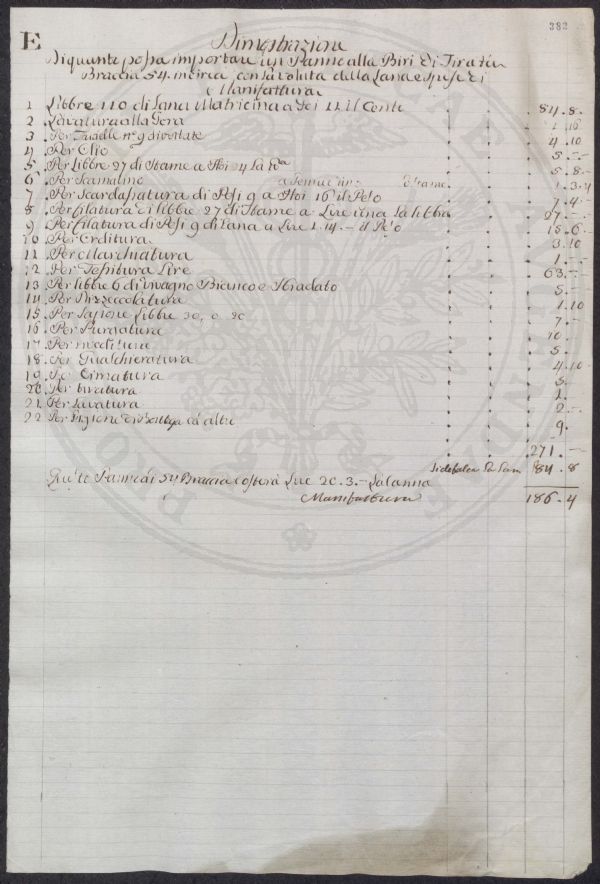 382
E
Dimostrazione
Di quanto possa importare un Panno alla Biri di Tiratu
Braccia 54. incirca con la valuta della Lana e spese di
Manifattura
1 Libbre 110 di Lana Matricina a 11 il Cento 84.8.
2 Lavatura alla Gora 1.16
3 Per n.º 9 4.10
4 Per Olio 5.-
5 Per Libbre 27 di Stame a 4 La 5.8.
6 Per 1.3.4
7 Per Scardassatura di Pesi 9 a 16 il Peso 7.4.
8 Per filatura di libbre 27 di Stame a Lire una la libbra 27.-
9 Per filatura di Pesi 9 di Lana a Lire 1.14.- il Peso 15.6
10 Per Orditura 3.10
11 Per Marchiatura 1.-
12 Per Tessitura Lire 63.-
13 Per libbre 6 di Bianco e 5.-
14 Per 1.10
15 Per Sapone Libbre 20, 7.-
16 Per Purgatura 10.-
17 Per 5.
18 Per Gualchieratura 4.10
19 Per Cimatura 3.
20 Per tiratura 1.
21 Per Lavatura 2.-
22 Per Pigione di Bottega ed altro 9.
271.-
84.8
Panno di 54 Braccia costerà Lire 20.3.- La Canna
Manifattura 186.4